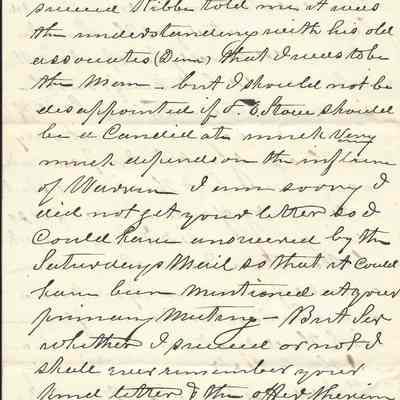 succeed Kibbe told me it was
the understanding with his old
associates (Dem) that I was to be
the Man - but I should not be
disappointed if F. E. Stow should
be a Candidate much Very
much depends on the influence
of Warren I am sorry I
did not get your letter so I
Could have answered by the
Saturdays Mail so that it Could
have been mentioned at your
primary Meeting - But Sir
whether I succeed or not I
shall ever remember your
kind letter & the offer therein